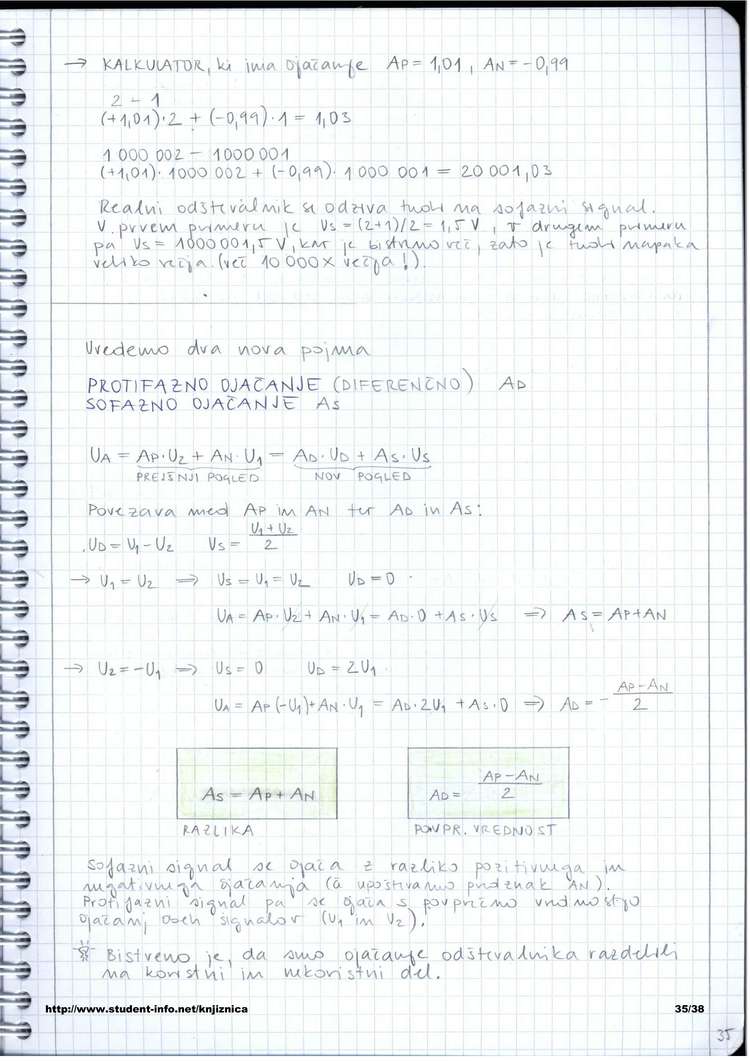 → KALKULATOR, ki ima ojačanje AP = 1,01, AN = -0,99
2 - 1
(+1,01)·2 + (-0,99)·1 = 1,03
1 000 002 - 1000 001
(+1,01)·1000 002 + (-0,99)·1 000 001 = 20 001,03
Realni odštevalnik se odziva tudi na sofazni signal.
V prvem primeru je US = (2+1)/2 = 1,5 V, v drugem primeru
pa US = 1000 001,5 V, kar je bistveno več, zato je tudi napaka
veliko večja. (več 10 000x večja!).
Uvedemo dva nova pojma
PROTIFAZNO OJAČANJE (DIFERENČNO) AD
SOFAZNO OJAČANJE AS
UA = AP·U2 + AN·U1 = AD·UD + AS·US
PREJŠNJI POGLED NOV POGLED
Povezava med AP in AN ter AD in AS:
UD = U1 - U2 US = (U1 + U2)/2
→ U1 = U2 ⇒ US = U1 = U2 UD = 0
UA = AP·U2 + AN·U1 = AD·0 + AS·US ⇒ AS = AP + AN
→ U2 = -U1 ⇒ US = 0 UD = 2U1
UA = AP(-U1) + AN·U1 = AD·2U1 + AS·0 ⇒ AD = - (AP - AN)/2
AS = AP + AN AD = (AP - AN)/2
RAZLIKA POVPR. VREDNOST
Sofazni signal se ojača z razliko pozitivnega in
negativnega ojačanja (če upoštevamo predznak AN).
Protifazni signal pa se ojača s povprečno vrednostjo
ojačanj obeh signalov (U1 in U2).
Bistveno je, da smo ojačanje odštevalnika razdelili
na koristni in nekoristni del.
http://www.student-info.net/knjiznica 35/38
35